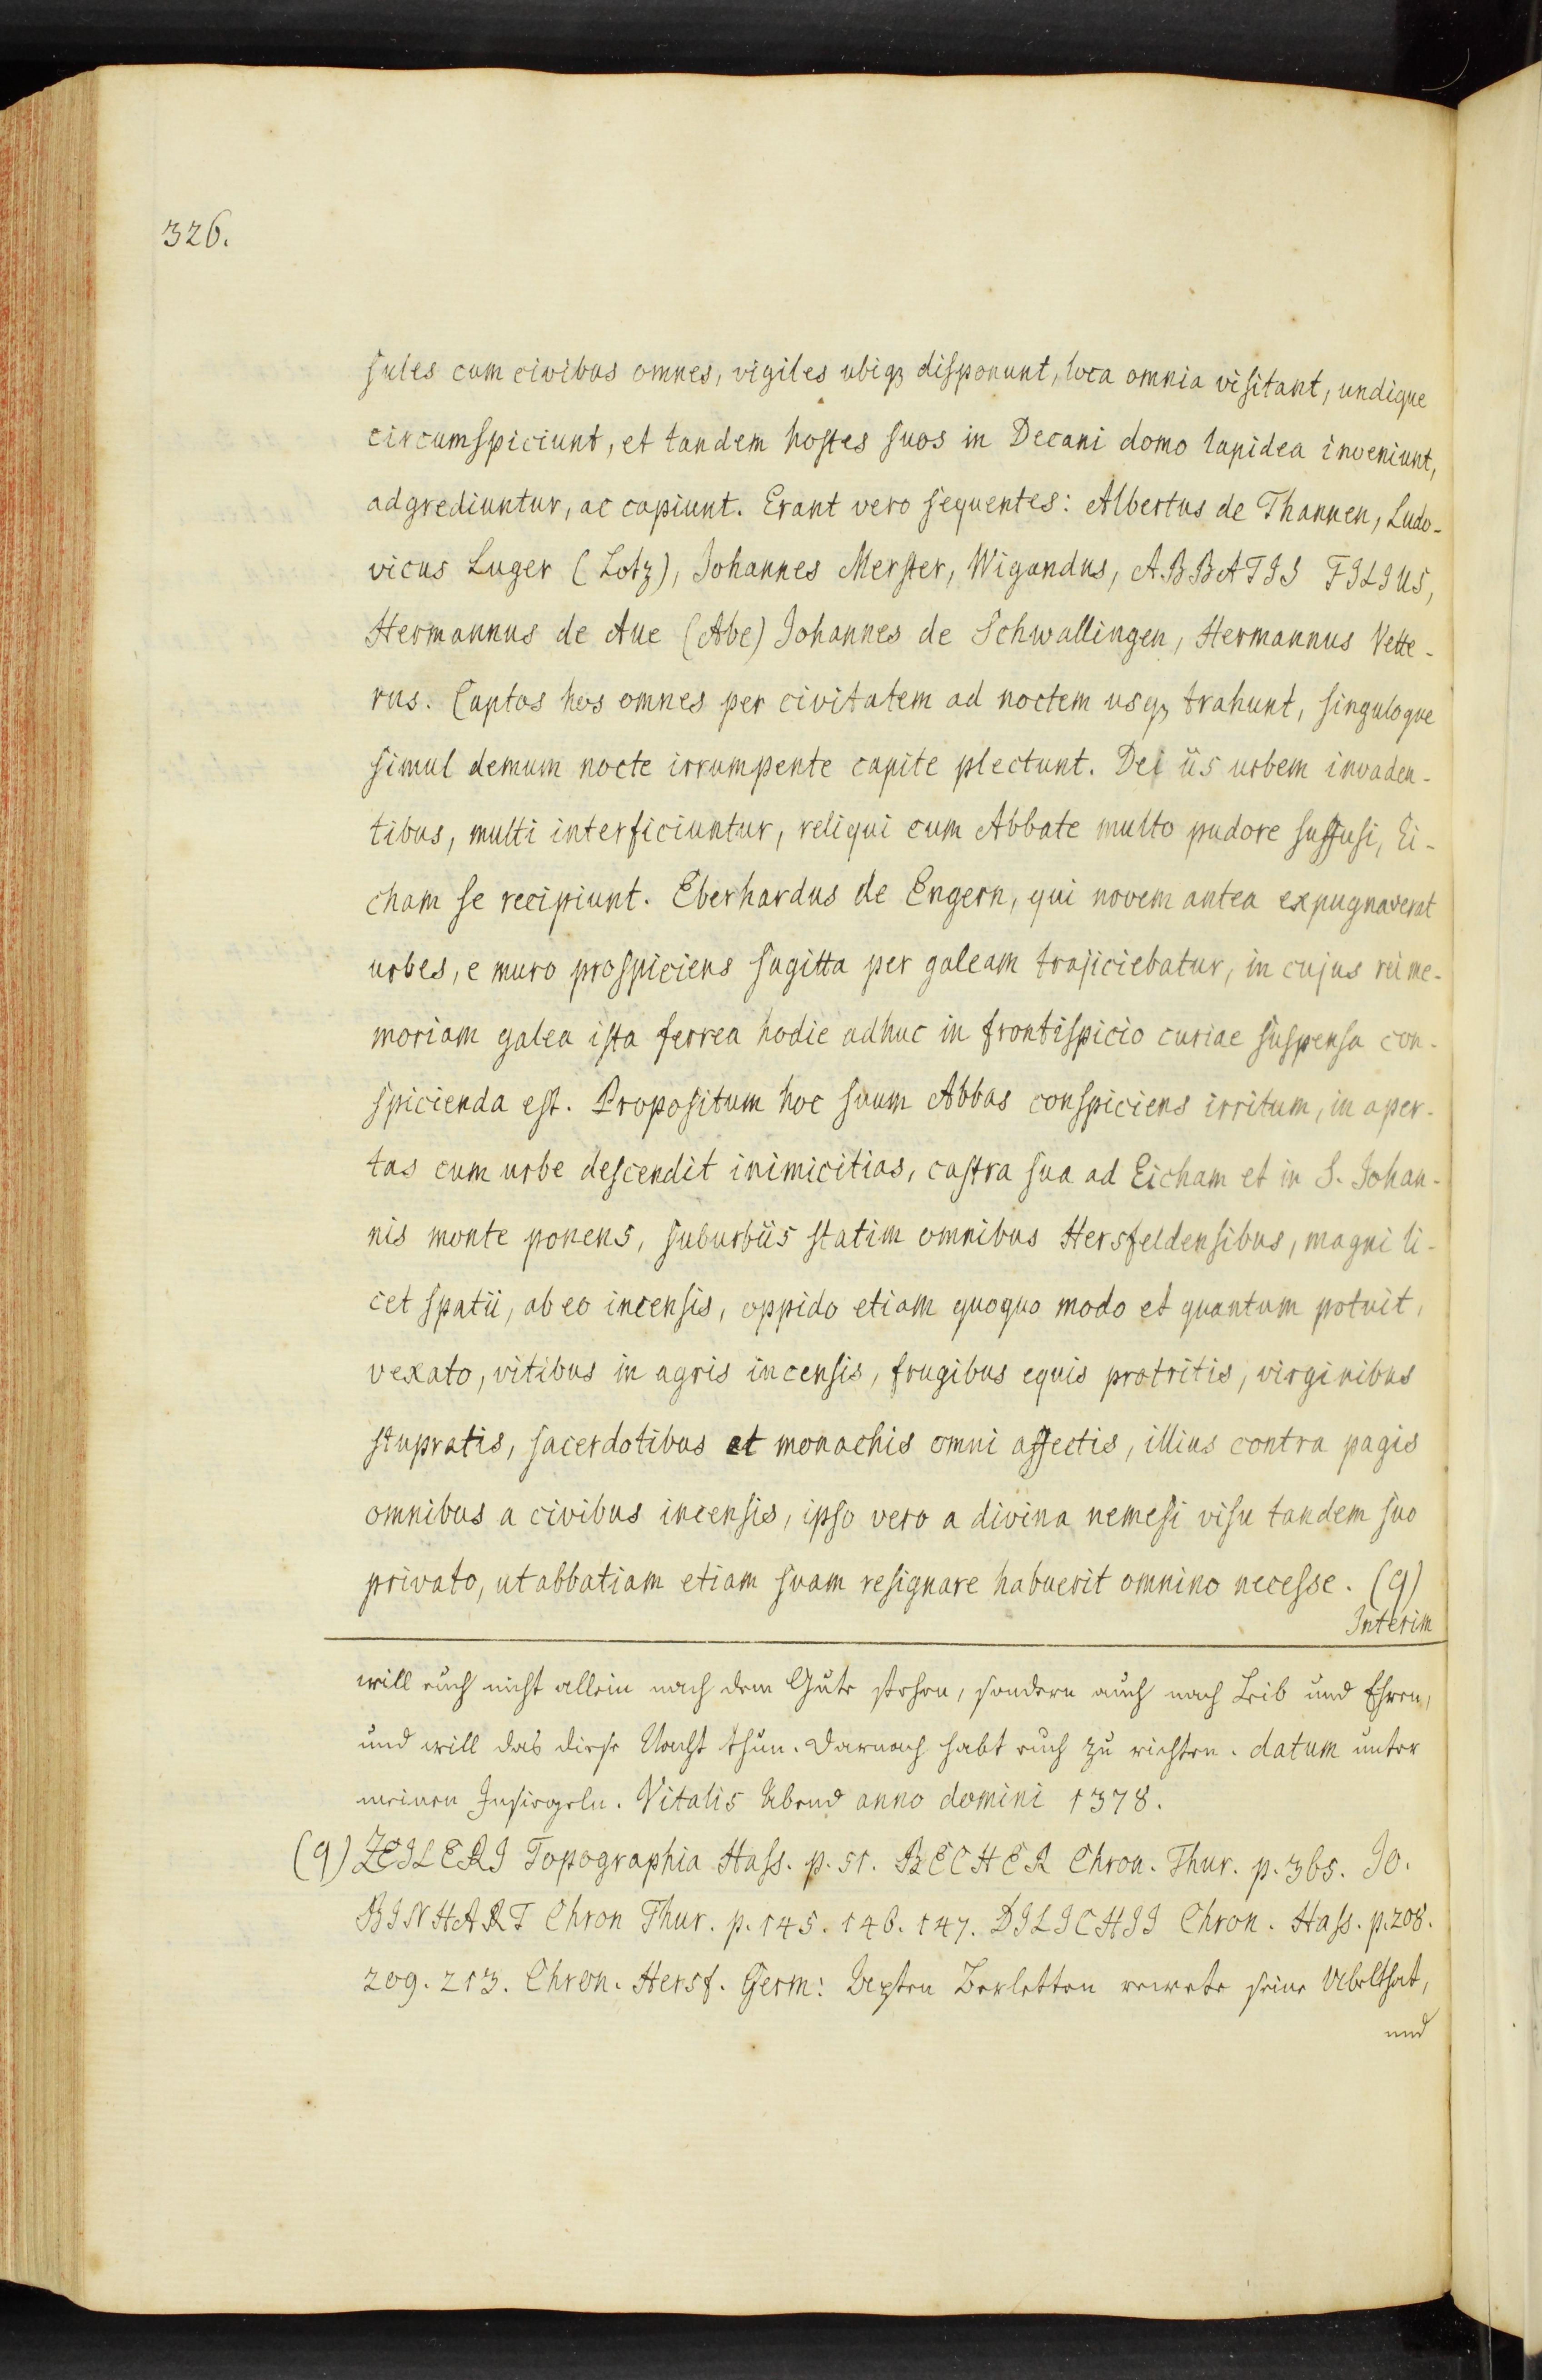 326.
sules cum civibus omnes, vigiles ubiq₃ disponunt, loca omnia visitant, undique
circumspiciunt, et tandem hostes suos in Decani domo lapidea inveniunt,
adgrediuntur, ac capiunt. Erant vero sequentes: Albertus de Thannen, Ludo-
vicus Luger (Lotz), Johannes Merster, Wigandus, ABBATIS FILIUS,
Hermannus de Aue (Abe) Johannes de Schwallingen, Hermannus Vette-
rus. Captos hos omnes per civitatem ad noctem usq₃ trahunt, singuloque
simul demum nocte irrumpente capite plectunt. De iis urbem invaden-
tibus, multi interficiuntur, reliqui cum Abbate multo pudore suffusi, Ei-
cham se recipiunt. Eberhardus de Engern, qui novem antea expugnaverat
urbes, e muro prospiciens sagitta per galeam trajiciebatur, in cujus rei me-
moriam galea ista ferrea hodie adhuc in frontispicio curiae suspensa con-
spicienda est. Propositum hoc suum Abbas conspiciens irritum, in aper-
tas cum urbe descendit inimicitias, castra sua ad Eicham et in S. Johan-
nis monte ponens, suburbiis statim omnibus Hersfeldensibus, magni li-
cet spatii, ab eo incensis, oppido etiam quoquo modo et quantum potuit,
vexato, vitibus in agris incensis, frugibus equis protritis, virginibus
stupratis, sacerdotibus et monachis omni affectis, illius contra pagis
omnibus a civibus incensis, ipso vero a divina nemesi visu tandem suo
privato, ut abbatiam etiam suam resignare habuerit omnino necesse. (q)
Interim
will euch nicht allein nach dem Gute stehen, sondern auch nach Leib und Ehren,
und will das diese Nacht thun. Darnach habt euch zu richten. datum unter
meinen Insiegeln. Vitalis Abend anno domini 1378.
(q) ZEILERI Topographia Hass. p. 51. BECHER Chron. Thur. p. 365. Jo.
BINHART Chron Thur. p. 145. 146. 147. DILICHII Chron. Hass. p. 208.
209. 213. Chron. Hersf. Germ: seine Ubelthat,
und